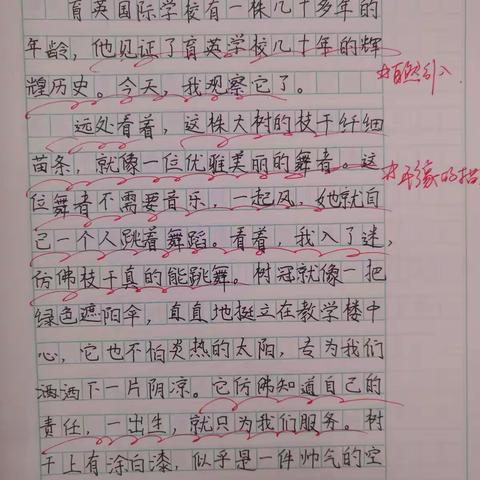 育英国际学校有一株几十多年的
年龄，他见证了育英学校几十年的辉
煌历史。今天，我观察它了。
#自然引入.
远处看着，这株大树的枝干纤细
苗条，就像一位优雅美丽的舞者。这
位舞者不需要音乐，一起风，她就自
己一个人跳着舞蹈。看着，我入了迷，
仿佛枝干真的能跳舞。树冠就像一把
绿色遮阳伞，直直地挺立在教学楼中
心，它也不怕炎热的太阳，专为我们
洒洒下一片阴凉。它仿佛知道自己的
责任，一出生，就只为我们服务。树
干上有涂白漆，似乎是一件帅气的空